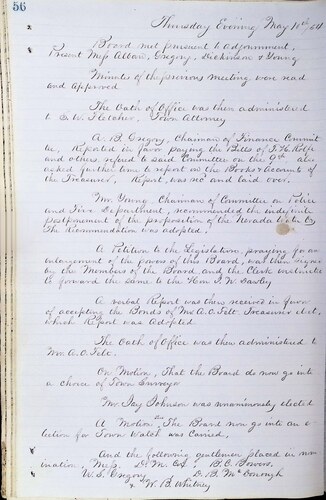 56
Thursday Evening May
Board met pursuant to adjournment.
Present Mess Alban, Gregory, Dickenson & Young
Minutes of the previous meeting were read
and approved
The Oath of Office was then administered
to G. W. Fletcher, Town Attorney
A. B. Gregory, Chairman of Finance Commit
tee, Reported in favor paying the Bills of
and others, refered to said Committee on the 9th also
asked further time to report on the Books & Accounts of
the Treasurer, Report was rec and laid over.
Mr. Young Chairman of Committee on Police
and Fire Department, recommended the indefinite
postponement of the proposition of the Nevada Water Co
The Recommendation was adopted.
A Petition to the Legislature, praying for an
enlargement of the powers of this Board, was then signed
by the Members of the Board, and the Clerk instructed
to forward the same to the Hon
A verbal Report was then received in favor
of accepting the Bonds of Mr. A. C. Folt. Treasurer elect,
which Report was Adopted
The Oath of Office was then administered to
Mr. A. C. Folt.
On Motion, That the Board do now go into
a choice of Town Surveyor
Mr Johnson was unanimously elected
A Motion, The Board now go into an e-
lection for Town Watch was Carried,
And the following gentlemen placed in nom
ination, Mess. B. C. Bowers.
W. S. Gregory D. B. McDonough
& W. B. Whitney